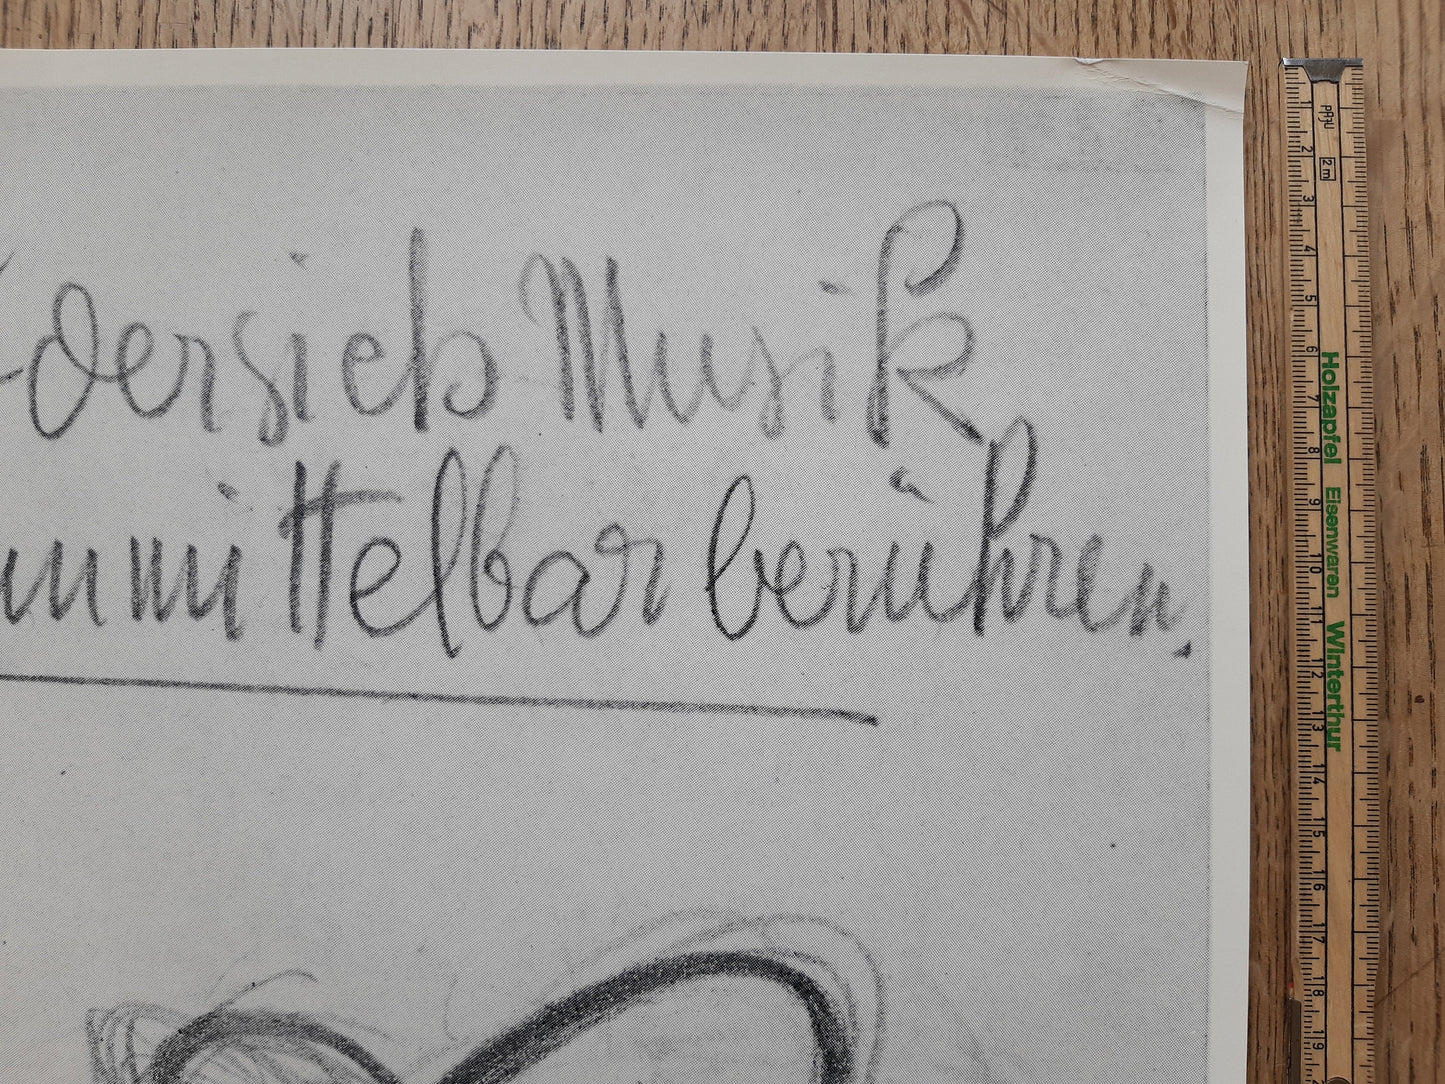 dersieb Musik
unmittelbar berühren.
2m
Holzapfel Eisenwaren Winterthur
1 2 3 4 5 6 7 8 9 10 11 12 13 14 15 16 17 18 19